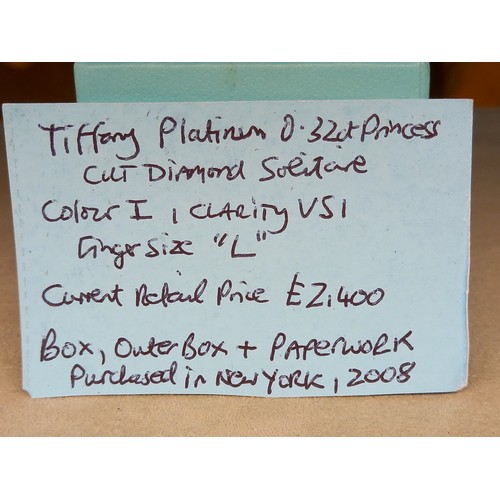 Tiffany Platinum 0.32ct Princess
CUT Diamond Solitaire
Colour I, CLARITY VS1
Finger Size "L"
Current Retail Price £2,400
Box, Outer Box + PAPERWORK
Purchased in NEW YORK, 2008